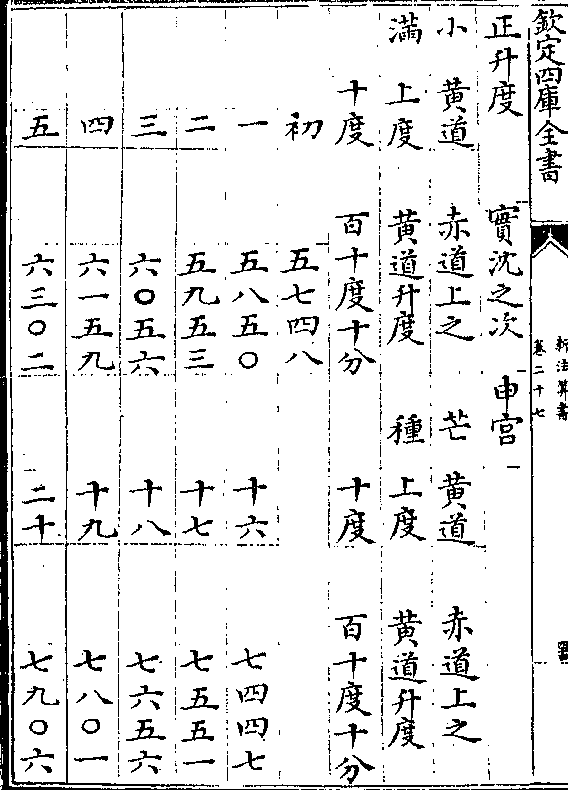 欽定四庫全書
新法算書
卷二十七
正升度 實沈之次 申宮
小 黄道 赤道上之 芒 黄道 赤道上之
滿 上度 黄道升度 種 上度 黄道升度
十度 百十度十分 十度 百十度十分
初 五七四八
一 五八五〇 十六 七四四七
二 五九五三 十七 七五五一
三 六〇五六 十八 七六五六
四 六一五九 十九 七八〇一
五 六三〇二 二十 七九〇六